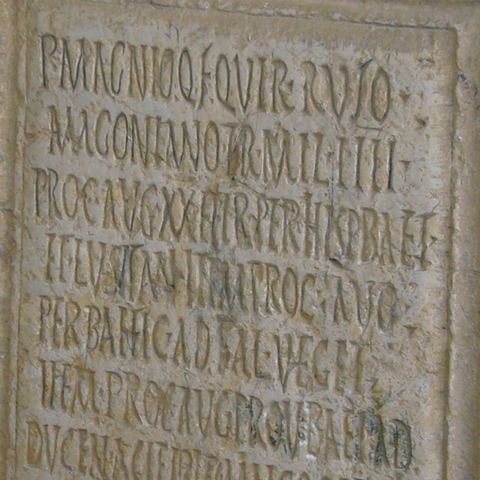 P·MAGNIO·Q·F·QVIR·RVFO·
MAGONIANO·TR·MIL·IIII·
PROC·AVG·XX·HER·PER·HISP·BAET·
ET·LVSITAN·ITEM·PROC·AVG
PER·BAETIC·AD·FAL·VEGET·
ITEM·PROC·AVG·PROV·BAET·AD
DVCEN·